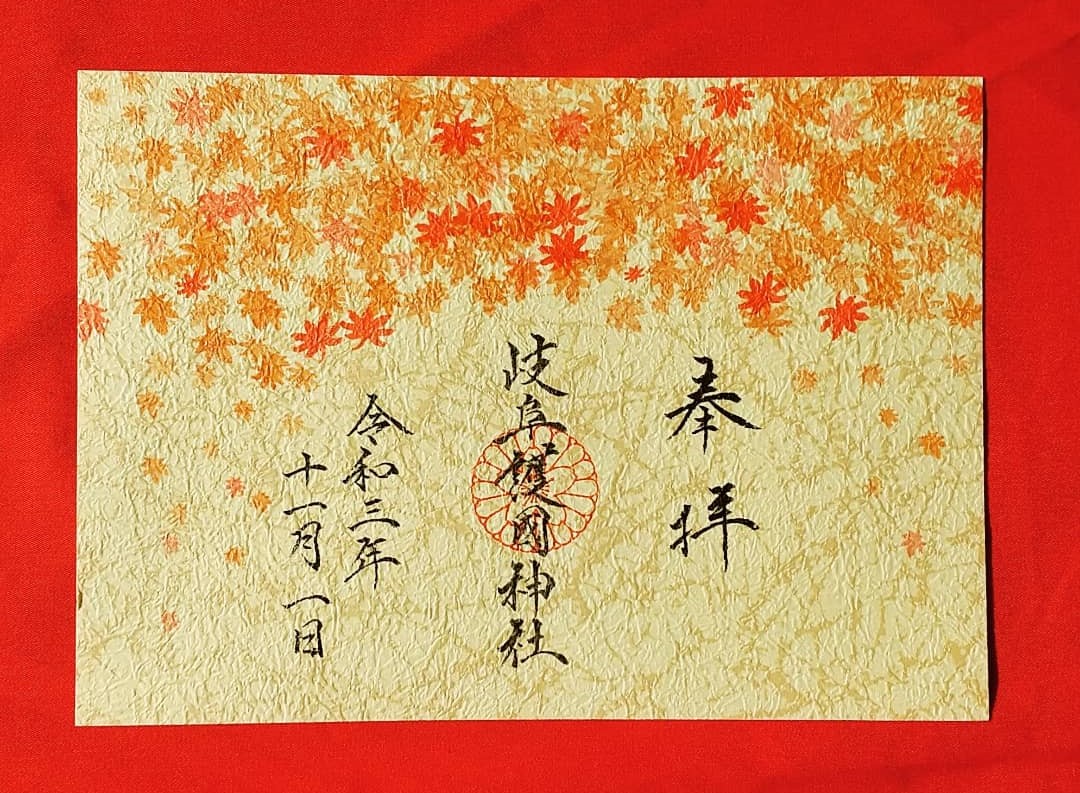 奉拝
岐阜護國神社
令和三年
十一月一日